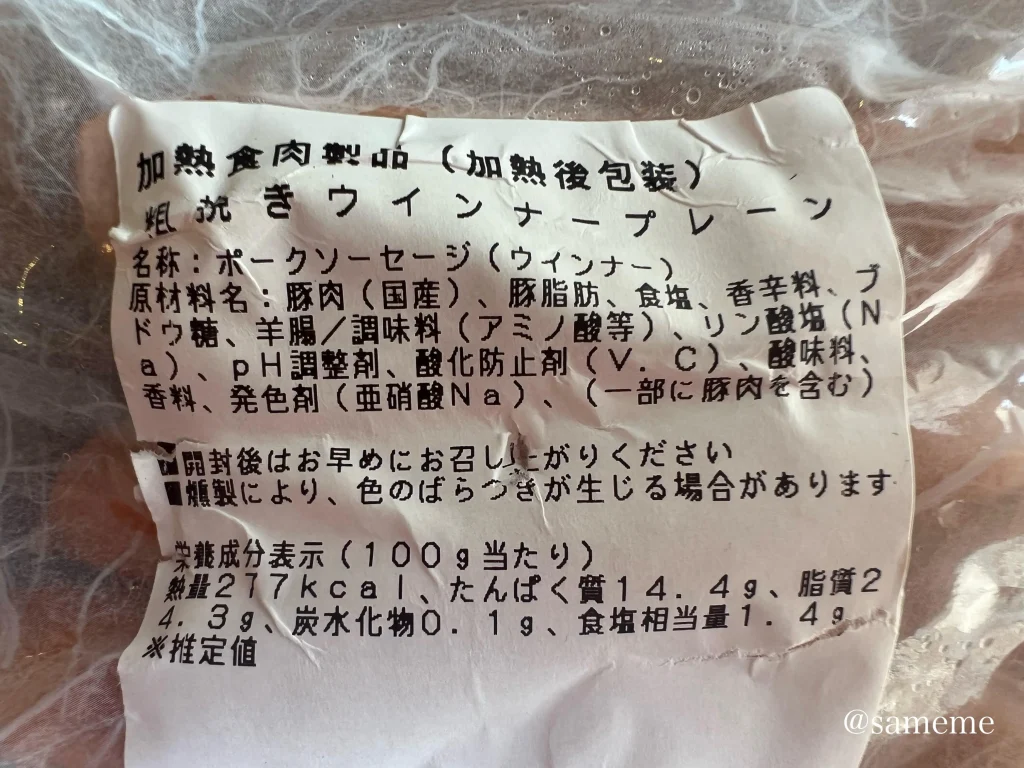 加熱食肉製品（加熱後包装）
粗挽きウインナープレーン
名称：ポークソーセージ（ウィンナー）
原材料名：豚肉（国産）、豚脂肪、食塩、香辛料、ブ
ドウ糖、羊腸／調味料（アミノ酸等）、リン酸塩（Ｎ
ａ）、ｐＨ調整剤、酸化防止剤（Ｖ．Ｃ）、酸味料、
香料、発色剤（亜硝酸Ｎａ）、（一部に豚肉を含む）
■開封後はお早めにお召し上がりください
■燻製により、色のばらつきが生じる場合があります
栄養成分表示（１００ｇ当たり）
熱量２７７ｋｃａｌ、たんぱく質１４．４ｇ、脂質２
４．３ｇ、炭水化物０．１ｇ、食塩相当量１．４ｇ
※推定値
@sameme